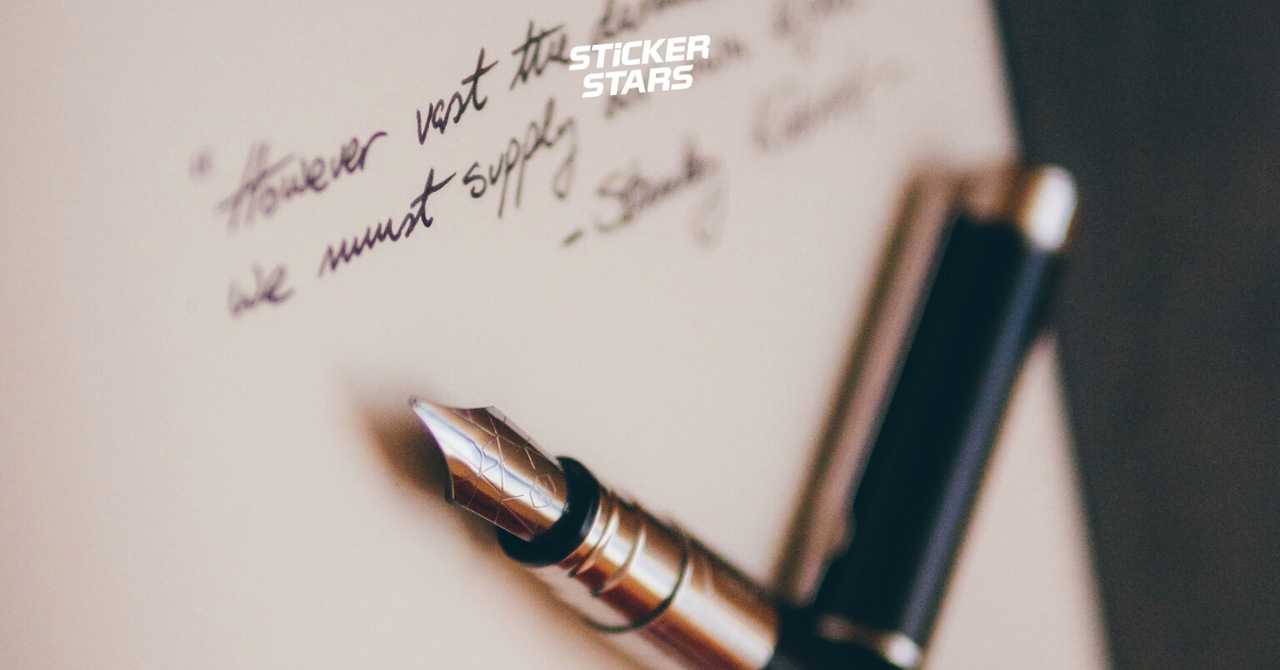 STiCKER
STARS
"However vast the
we must supply our own
- Stanley